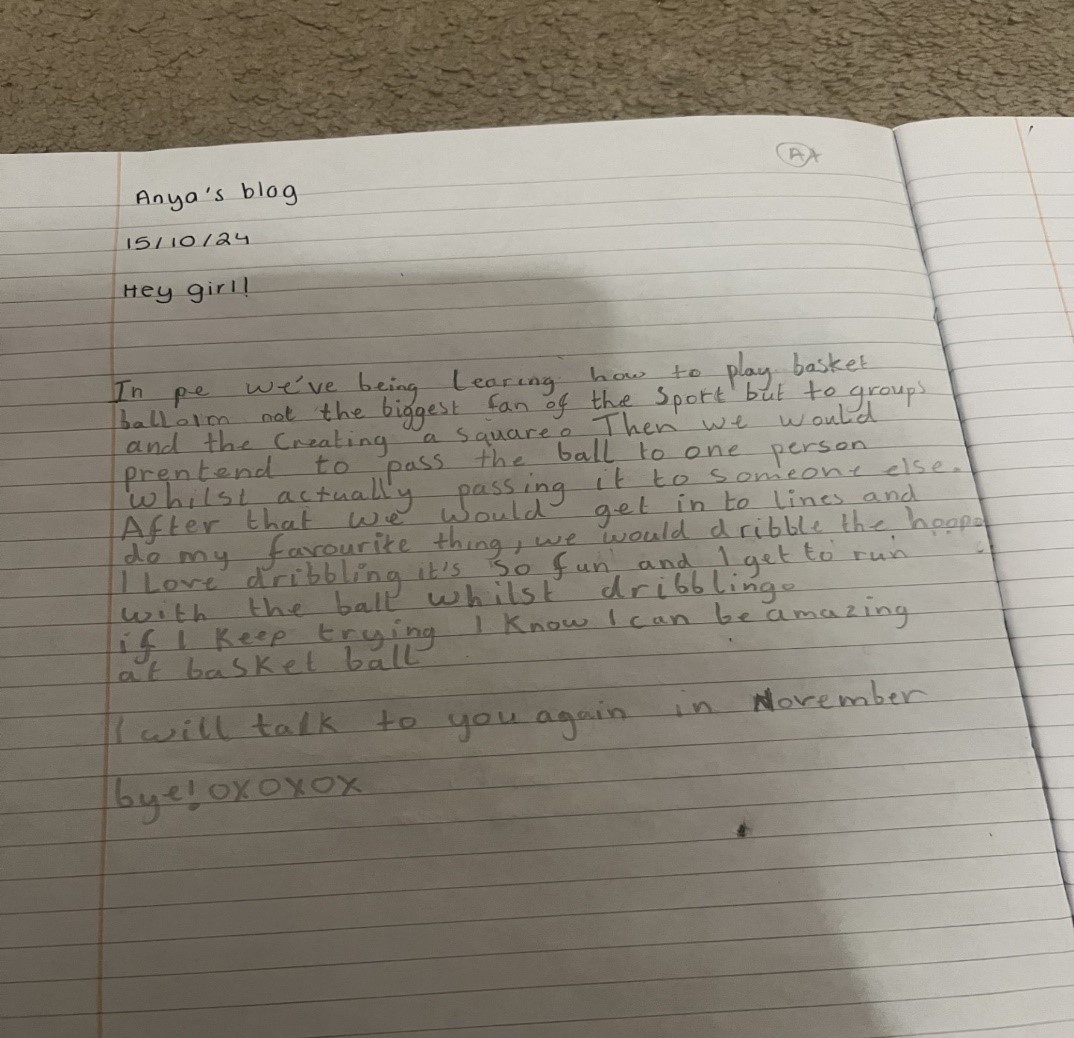 A+
Anya's blog
15/10/24
Hey girl!
In pe we've being learing how to play basket
ball.im not the biggest fan of the sport but to groups
and the Creating a square. Then we would
prentend to pass the ball to one person
whilst actually passing it to someone else.
After that we would get in to lines and
do my favourite thing, we would dribble the hoop.
I Love dribbling it's so fun and I get to run
with the ball whilst dribbling.
if I Keep trying I Know I can be amazing
at basket ball
I will talk to you again in November
bye! oxoxox